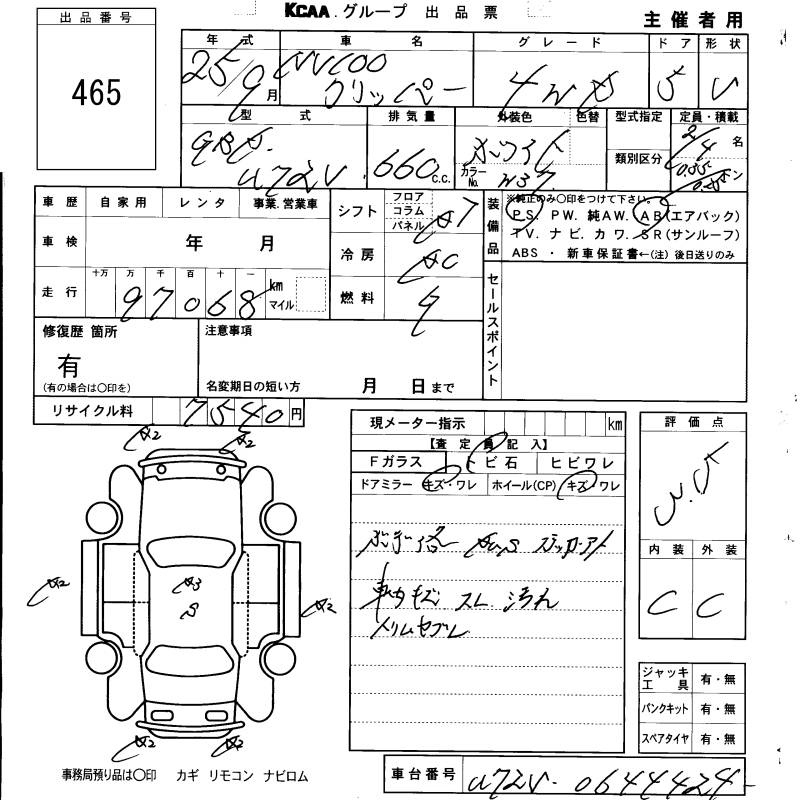 KCAA.グループ 出品票
主催者用
出品番号
465
年式 車名 グレード ドア 形状
25/9月 NV100 クリッパー 4WD 5 V
型式 排気量 外装色 色替 型式指定 定員・積載
GBD- U72V 660 C.C. ホワイト 2/4 名
カラーNo. 類別区分
車歴 自家用 レンタ 事業.営業車
車検 年 月
走行 十万 万 千 百 十 一 km マイル
97068
シフト フロア コラム パネル AT
冷房 AC
燃料 G
装備品 ※純正のみ〇印をつけて下さい。
PS. PW. 純AW. AB(エアバック)
TV. ナビ. カワ. SR(サンルーフ)
ABS ・ 新車保証書←(注) 後日送りのみ
セールスポイント
修復歴 箇所
有
(有の場合は〇印を)
注意事項
名変期日の短い方 月 日まで
リサイクル料 7540円
現メーター指示 km
【査定員記入】
Fガラス トビ石 ヒビワレ
ドアミラー キズ・ワレ ホイール(CP) キズ・ワレ
車内キズ スレ 汚れ
評価点
内装 外装
C C
A2 A2
A2 A3 A2
S
A2 A2
ジャッキ工具 有・無
パンクキット 有・無
スペアタイヤ 有・無
事務局預り品は〇印 カギ リモコン ナビロム
車台番号 U72V-0644424-